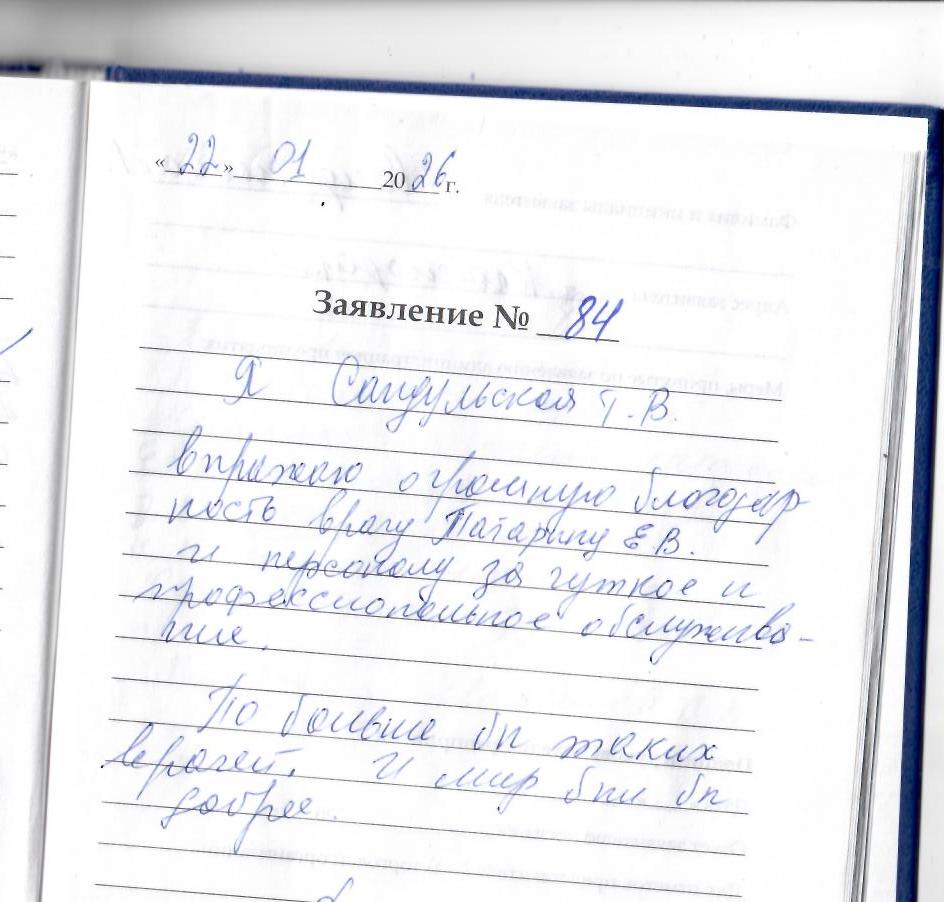 «22» 01 2026 г.
Заявление № 84
Я Сандульская Т.В.
выражаю огромную благодар
ность врачу Татарину Е В.
и персоналу за чуткое и
профессиональное обслужива-
ние.
По больше бы таких
врачей. И мир был бы
добрее.